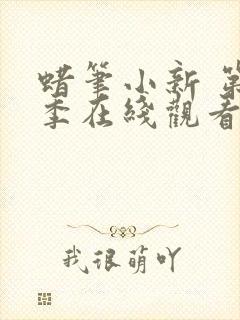 蜡筆小新 第
季在綫觀看
我很萌吖